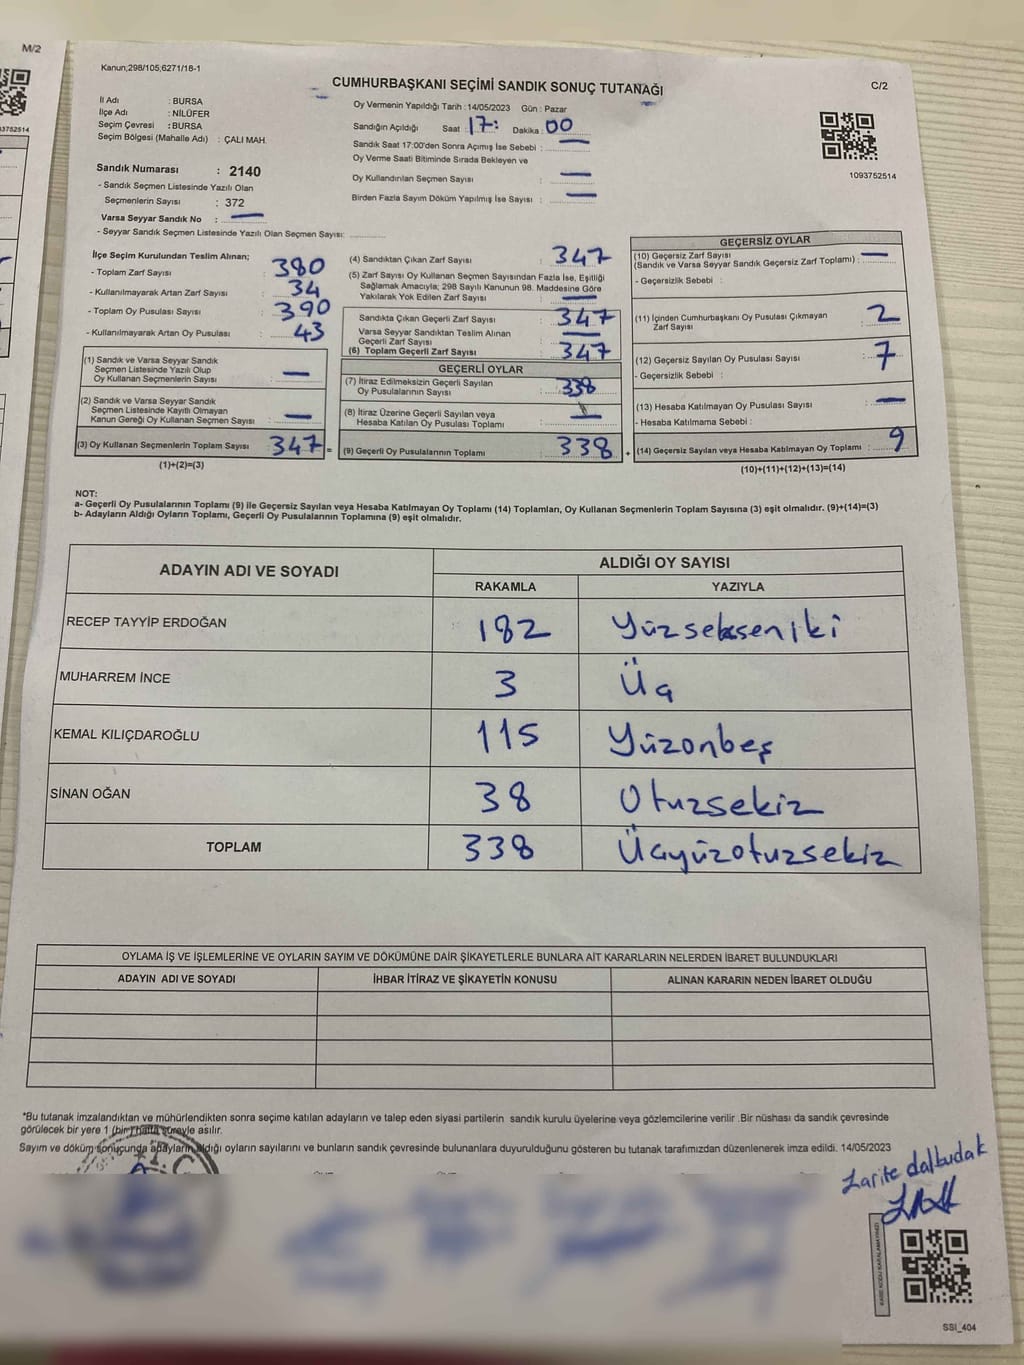 M/2
Kanun,298/105,6271/18-1
CUMHURBAŞKANI SEÇİMİ SANDIK SONUÇ TUTANAĞI
C/2
3752514
İl Adı : BURSA
İlçe Adı : NİLÜFER
Seçim Çevresi : BURSA
Seçim Bölgesi (Mahalle Adı) : ÇALI MAH.
Sandık Numarası : 2140
- Sandık Seçmen Listesinde Yazılı Olan
Seçmenlerin Sayısı : 372
Varsa Seyyar Sandık No : —
- Seyyar Sandık Seçmen Listesinde Yazılı Olan Seçmen Sayısı:
Oy Vermenin Yapıldığı Tarih : 14/05/2023 Gün : Pazar
Sandığın Açıldığı Saat : 17: Dakika : 00
Sandık Saat 17:00'den Sonra Açmış İse Sebebi : —
Oy Verme Saati Bitiminde Sırada Bekleyen ve
Oy Kullandırılan Seçmen Sayısı : —
Birden Fazla Sayım Döküm Yapılmış İse Sayısı : —
1093752514
İlçe Seçim Kurulundan Teslim Alınan;
- Toplam Zarf Sayısı : 380
- Kullanılmayarak Artan Zarf Sayısı : 34
- Toplam Oy Pusulası Sayısı : 390
- Kullanılmayarak Artan Oy Pusulası : 43
(1) Sandık ve Varsa Seyyar Sandık
Seçmen Listesinde Yazılı Olup
Oy Kullanan Seçmenlerin Sayısı : —
(2) Sandık ve Varsa Seyyar Sandık
Seçmen Listesinde Kayıtlı Olmayan
Kanun Gereği Oy Kullanan Seçmen Sayısı : —
(3) Oy Kullanan Seçmenlerin Toplam Sayısı : 347 =
(1)+(2)=(3)
(4) Sandıktan Çıkan Zarf Sayısı : 347
(5) Zarf Sayısı Oy Kullanan Seçmen Sayısından Fazla İse, Eşitliği
Sağlamak Amacıyla; 298 Sayılı Kanunun 98. Maddesine Göre
Yakılarak Yok Edilen Zarf Sayısı : —
Sandıkta Çıkan Geçerli Zarf Sayısı : 347
Varsa Seyyar Sandıktan Teslim Alınan
Geçerli Zarf Sayısı : —
(6) Toplam Geçerli Zarf Sayısı : 347
GEÇERLİ OYLAR
(7) İtiraz Edilmeksizin Geçerli Sayılan
Oy Pusulalarının Sayısı : 338
(8) İtiraz Üzerine Geçerli Sayılan veya
Hesaba Katılan Oy Pusulası Toplamı : —
(9) Geçerli Oy Pusulalarının Toplamı : 338 +
GEÇERSİZ OYLAR
(10) Geçersiz Zarf Sayısı
(Sandık ve Varsa Seyyar Sandık Geçersiz Zarf Toplamı) : —
- Geçersizlik Sebebi :
(11) İçinden Cumhurbaşkanı Oy Pusulası Çıkmayan
Zarf Sayısı : 2
(12) Geçersiz Sayılan Oy Pusulası Sayısı : 7
- Geçersizlik Sebebi :
(13) Hesaba Katılmayan Oy Pusulası Sayısı : —
- Hesaba Katılmama Sebebi :
(14) Geçersiz Sayılan veya Hesaba Katılmayan Oy Toplamı : 9
(10)+(11)+(12)+(13)=(14)
NOT:
a- Geçerli Oy Pusulalarının Toplamı (9) ile Geçersiz Sayılan veya Hesaba Katılmayan Oy Toplamı (14) Toplamları, Oy Kullanan Seçmenlerin Toplam Sayısına (3) eşit olmalıdır. (9)+(14)=(3)
b- Adayların Aldığı Oyların Toplamı, Geçerli Oy Pusulalarının Toplamına (9) eşit olmalıdır.
ADAYIN ADI VE SOYADI
ALDIĞI OY SAYISI
RAKAMLA YAZIYLA
RECEP TAYYİP ERDOĞAN 182 Yüzsekseniki
MUHARREM İNCE 3 Üç
KEMAL KILIÇDAROĞLU 115 Yüzonbeş
SİNAN OĞAN 38 Otuzsekiz
TOPLAM 338 Üçyüzotuzsekiz
OYLAMA İŞ VE İŞLEMLERİNE VE OYLARIN SAYIM VE DÖKÜMÜNE DAİR ŞİKAYETLERLE BUNLARA AİT KARARLARIN NELERDEN İBARET BULUNDUKLARI
ADAYIN ADI VE SOYADI İHBAR İTİRAZ VE ŞİKAYETİN KONUSU ALINAN KARARIN NEDEN İBARET OLDUĞU
*Bu tutanak imzalandıktan ve mühürlendikten sonra seçime katılan adayların ve talep eden siyasi partilerin sandık kurulu üyelerine veya gözlemcilerine verilir .Bir nüshası da sandık çevresinde
görülecek bir yere 1 (bir) hafta süreyle asılır.
Sayım ve döküm sonucunda adayların aldığı oyların sayılarını ve bunların sandık çevresinde bulunanlara duyurulduğunu gösteren bu tutanak tarafımızdan düzenlenerek imza edildi. 14/05/2023
T.C.
dalbudak
KARE KODU KARALAMAYINIZ!
SSI_404